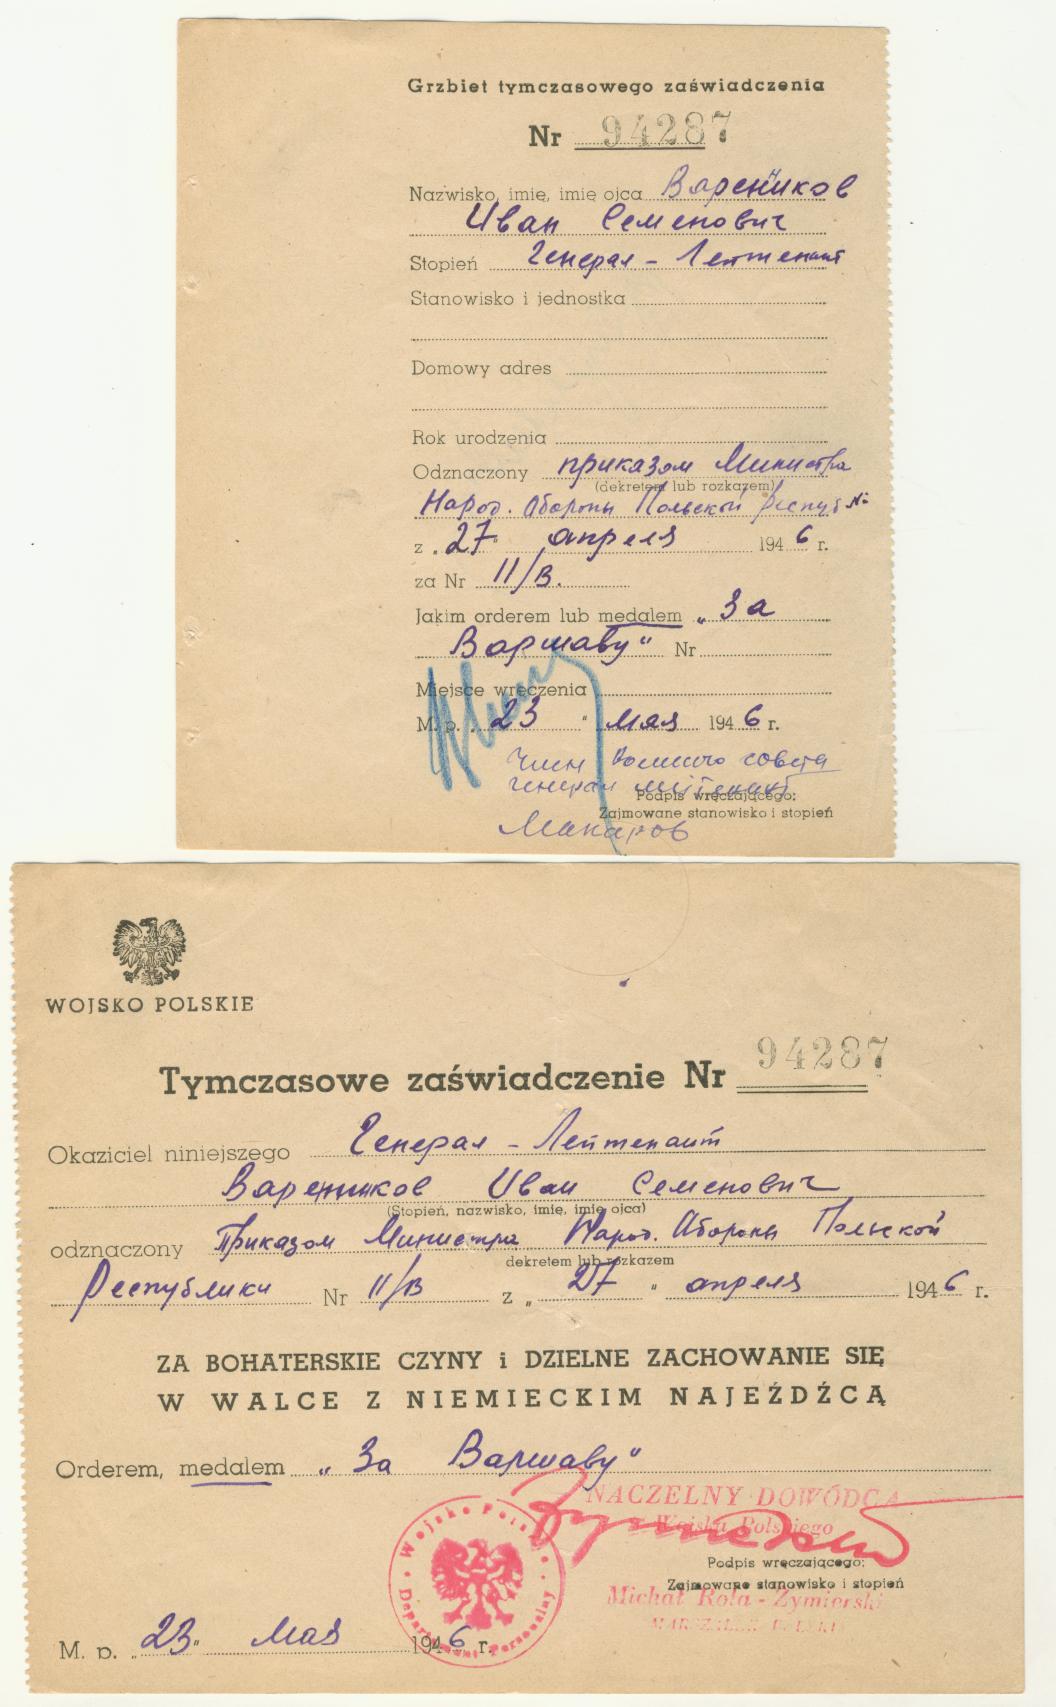 Grzbiet tymczasowego zaświadczenia
Nr 94287
Nazwisko, imię, imię ojca Вареников
Иван Семенович
Stopień Генерал - Лейтенант
Stanowisko i jednostka
Domowy adres
Rok urodzenia
Odznaczony приказом Министра
(dekretem lub rozkazem)
Народ. Обороны Польской Республ
z „27" апреля 1946 r.
za Nr 11/В.
Jakim orderem lub medalem „За
Варшаву" Nr
Miejsce wręczenia
M. p. „23" мая 1946 r.
Член Военного совета
генерал лейтенант
Podpis wręczającego:
Zajmowane stanowisko i stopień
Макаров
WOJSKO POLSKIE
Tymczasowe zaświadczenie Nr 94287
Okaziciel niniejszego Генерал - Лейтенант
Вареников Иван Семенович
(Stopień, nazwisko, imię, imię ojca)
odznaczony Приказом Министра Народ. Обороны Польской
dekretem lub rozkazem
Республики Nr 11/В z „27" апреля 1946 r.
ZA BOHATERSKIE CZYNY i DZIELNE ZACHOWANIE SIĘ
W WALCE Z NIEMIECKIM NAJEŹDŹCĄ
Orderem, medalem „За Варшаву"
NACZELNY DOWÓDCA
Wojska Polskiego
Podpis wręczającego:
Zajmowane stanowisko i stopień
Michał Rola-Żymierski
MARSZAŁEK POLSKI
Wojsko Polskie
Departament Personalny
M. p. „23" мая 1946 r.